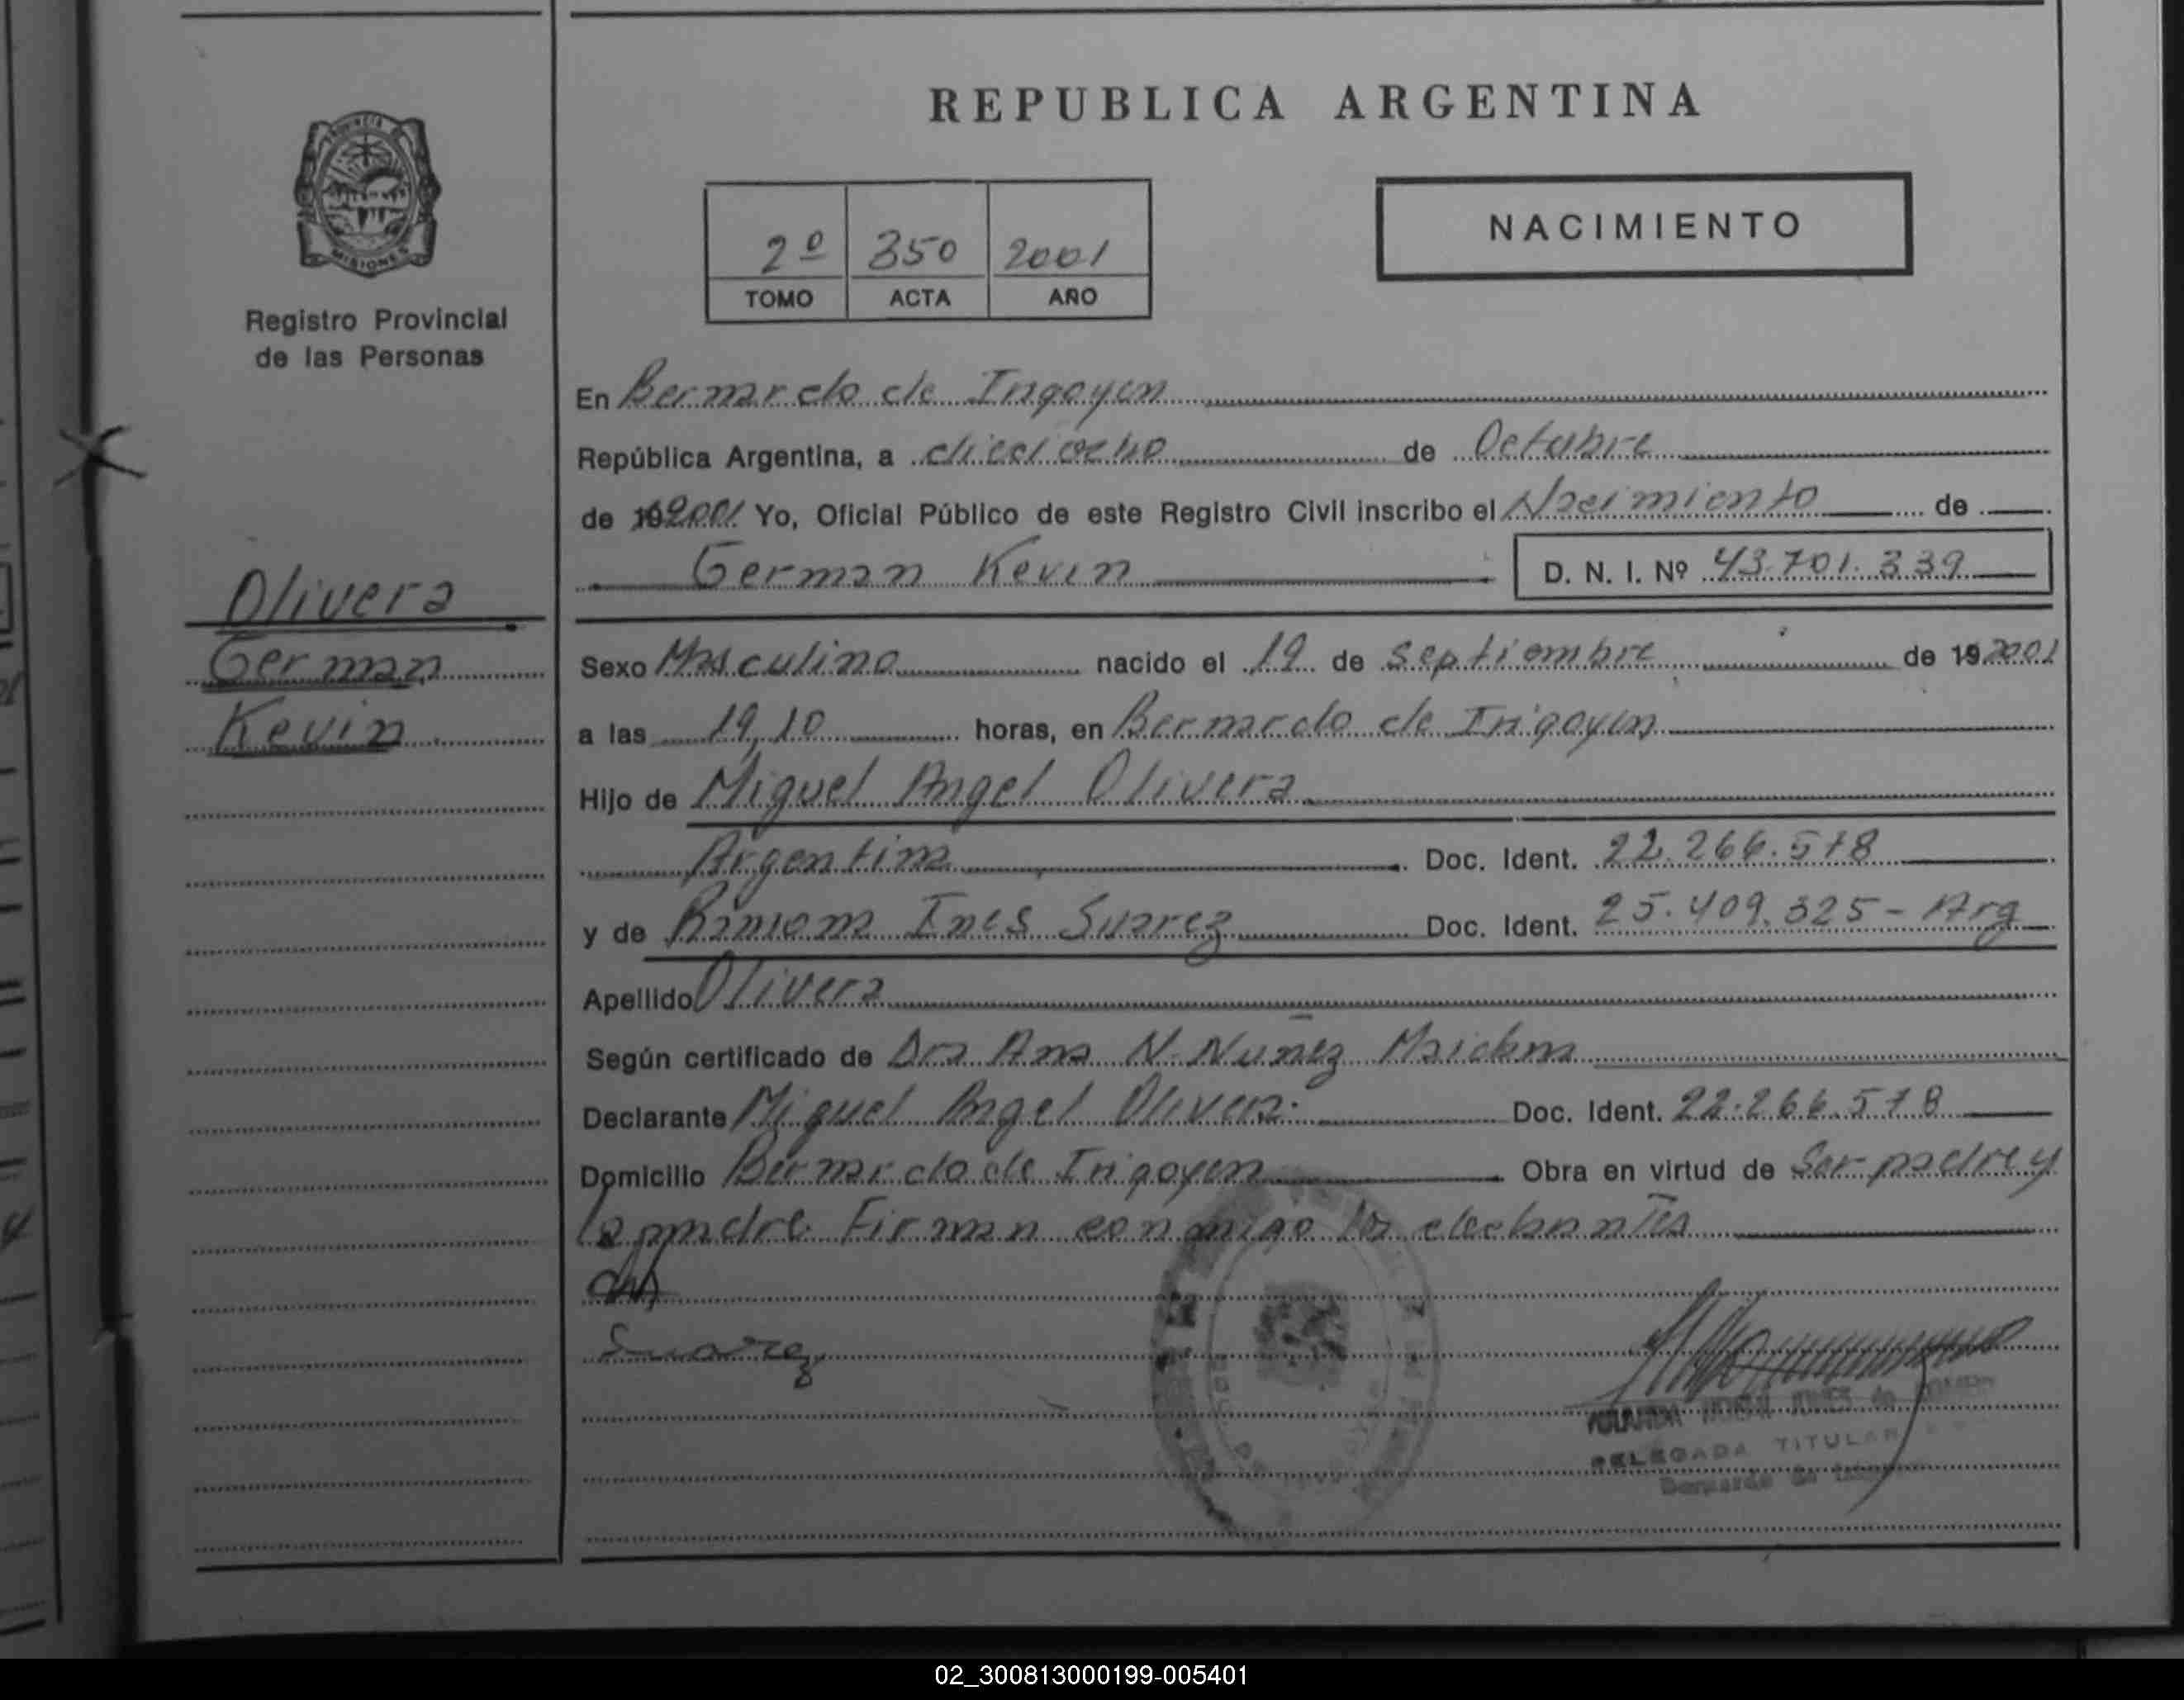 REPUBLICA ARGENTINA
PROVINCIA DE
MISIONES
Registro Provincial
de las Personas
2º 350 2001
TOMO ACTA AÑO
NACIMIENTO
En Bernardo de Irigoyen
República Argentina, a dieciocho de Octubre
de 19 2001 Yo, Oficial Público de este Registro Civil inscribo el Nacimiento de
German Kevin D. N. I. Nº 43.701.339
Olivera
German
Kevin
Sexo Masculino nacido el 19 de Septiembre de 19 2001
a las 19,10 horas, en Bernardo de Irigoyen
Hijo de Miguel Angel Olivera
Argentina Doc. Ident. 22.266.578
y de Ramona Ines Suarez Doc. Ident. 25.409.325 - Arg
Apellido Olivera
Según certificado de Dra Ana N. Nuñez
Declarante Miguel Angel Olivera Doc. Ident. 22.266.578
Domicilio Bernardo de Irigoyen Obra en virtud de Ser padre y
la madre Firman conmigo los
Suarez
DELEGADA TITULAR
Bernardo de
02_300813000199-005401